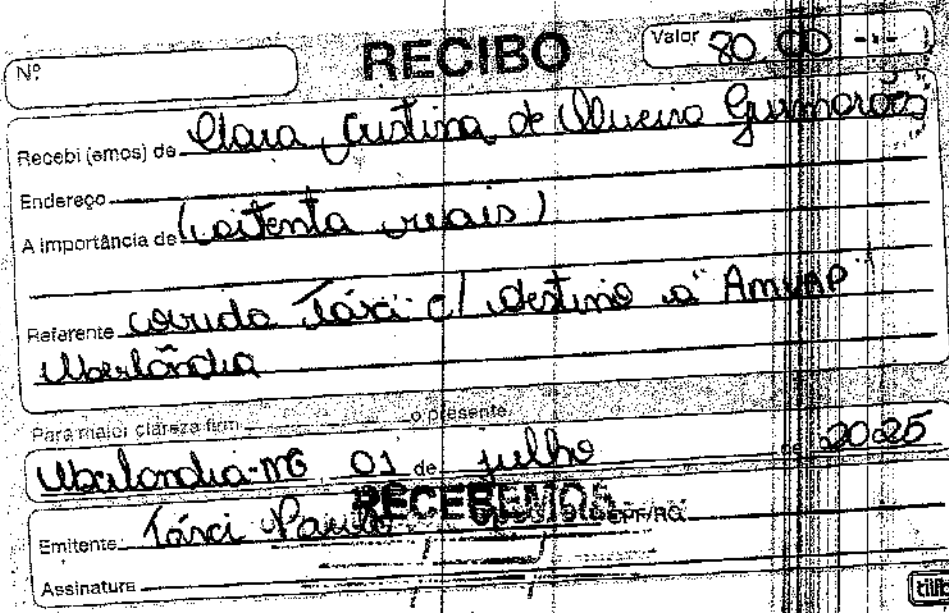 Nº
RECIBO
Valor 80,00 ---
Recebi (emos) de Clara Cristina de Oliveira Guimarães
Endereço
A importância de (oitenta reais)
Referente corrida táxi c/ destino a "AMVAP"
Uberlândia
Para maior clareza firm o presente.
Uberlândia-MG 01 de julho de 2025
RECEBEMOS
Emitente Táxi Paulo CPF/RG
Assinatura